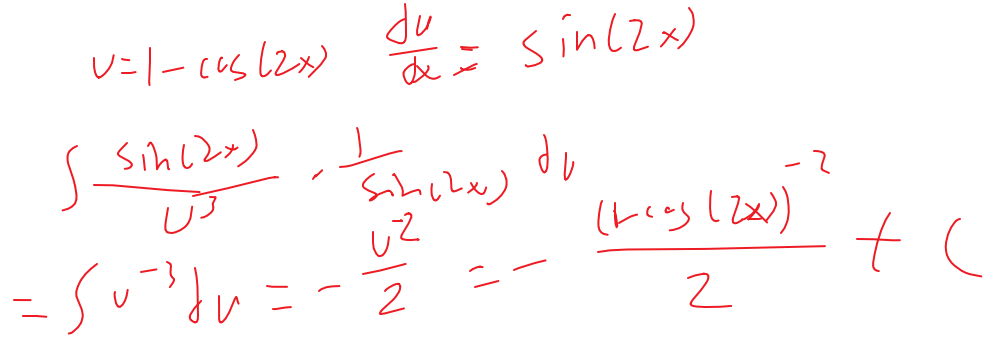 u=1-cos(2x) du/dx = sin(2x)
∫ sin(2x)/u^3 · 1/sin(2x) du
= ∫ u^-3 du = - u^-2/2 = - (1-cos(2x))^-2/2 + C